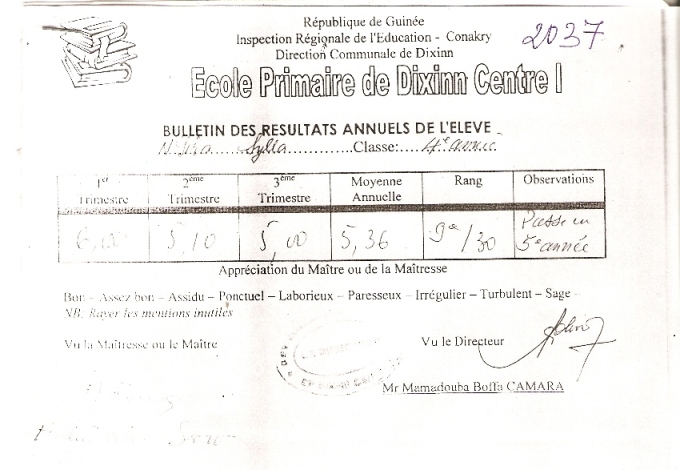 République de Guinée
Inspection Régionale de l'Education - Conakry
Direction Communale de Dixinn
2037
Ecole Primaire de Dixinn Centre I
BULLETIN DES RESULTATS ANNUELS DE L'ELEVE
Sylla Classe: 4e année
1er Trimestre 2ème Trimestre 3ème Trimestre Moyenne Annuelle Rang Observations
6,00 5,10 5,00 5,36 9e/30 Passe en 5e année
Appréciation du Maître ou de la Maîtresse
Bon – Assez bon – Assidu – Ponctuel – Laborieux – Paresseux – Irrégulier – Turbulent – Sage -
NB. Rayer les mentions inutiles
Vu la Maîtresse ou le Maître Vu le Directeur
Mr Mamadouba Boffa CAMARA